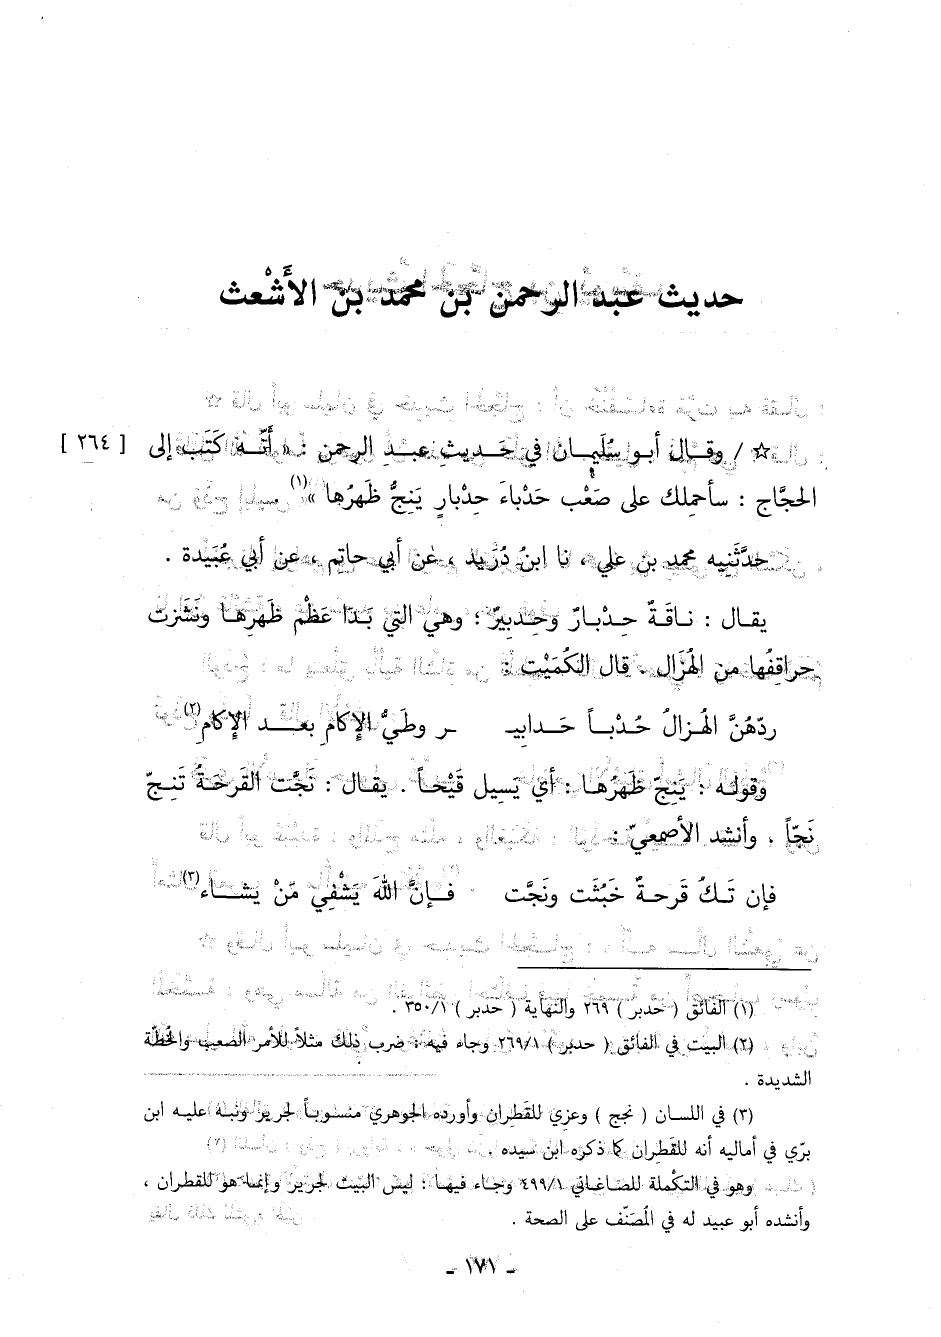 حديث عبد الرحمن بن محمد بن الأَشْعث
☆ / وقـال أبـو سُلَيمـان في حَـديثِ عبـدِ الرحمن : « أَنَّـه كَتَب إلى [ ٢٦٤ ]
الحجَّاج : سأحمِلك على صَعْب حَدْباءَ حِدْبارٍ يَنِجُّ ظَهرُها »(١)
حدَّثَنِيه محمد بن علي ، نا ابنُ دُرَيد ، عن أبي حاتم ، عن أبي عُبَيدة .
يقـال : نـاقَـةٌ حِدْبـارٌ وحِدبِيرٌ ؛ وهي التي بَـدَا عَظْم ظَهرِهـا ونَشَزت
حراقِفُها من الهُزَال . قال الكُمَيْت :
ردّهُنَّ الهُـزالُ حُـدْبـاً حَـدابِيـ ـر وطَيُّ الإِكامِ بعـــد الإِكامِ(٢)
وقولـه : يَنِجّ ظَهرُهـا : أي يَسِيل قَيْحـاً . يقـال : نَجَّت القَرحَـةُ تَنِـجّ
نَجّاً ، وأنشد الأصمعيّ :
فإن تَـكُ قَرحـةٌ خَبُثَت ونَجَّت فـإنَّ اللهَ يَشْفِي مَنْ يشـــاء(٣)
(١) الفائق ( حدبر ) ٢٦٩ والنهاية ( حدبر ) ٣٥٠/١ .
(٢) البيت في الفائق ( حدبر ) ٢٦٩/١ وجاء فيه : ضرب ذلك مثلاً للأمر الصعب والخُطّة
الشديدة .
(٣) في اللسان ( نجج ) وعزي للقَطِران وأورده الجوهري منسوبـاً لجرير ونبـه عليـه ابن
برّي في أماليه أنه للقَطِران كما ذكره ابن سيده .
وهو في التكملة للصاغاني ٤٩٩/١ وجاء فيهـا : ليس البيت لجرير وإنمـا هو للقطران ،
وأنشده أبو عبيد له في المُصَنّف على الصحة .
- ١٧١ -